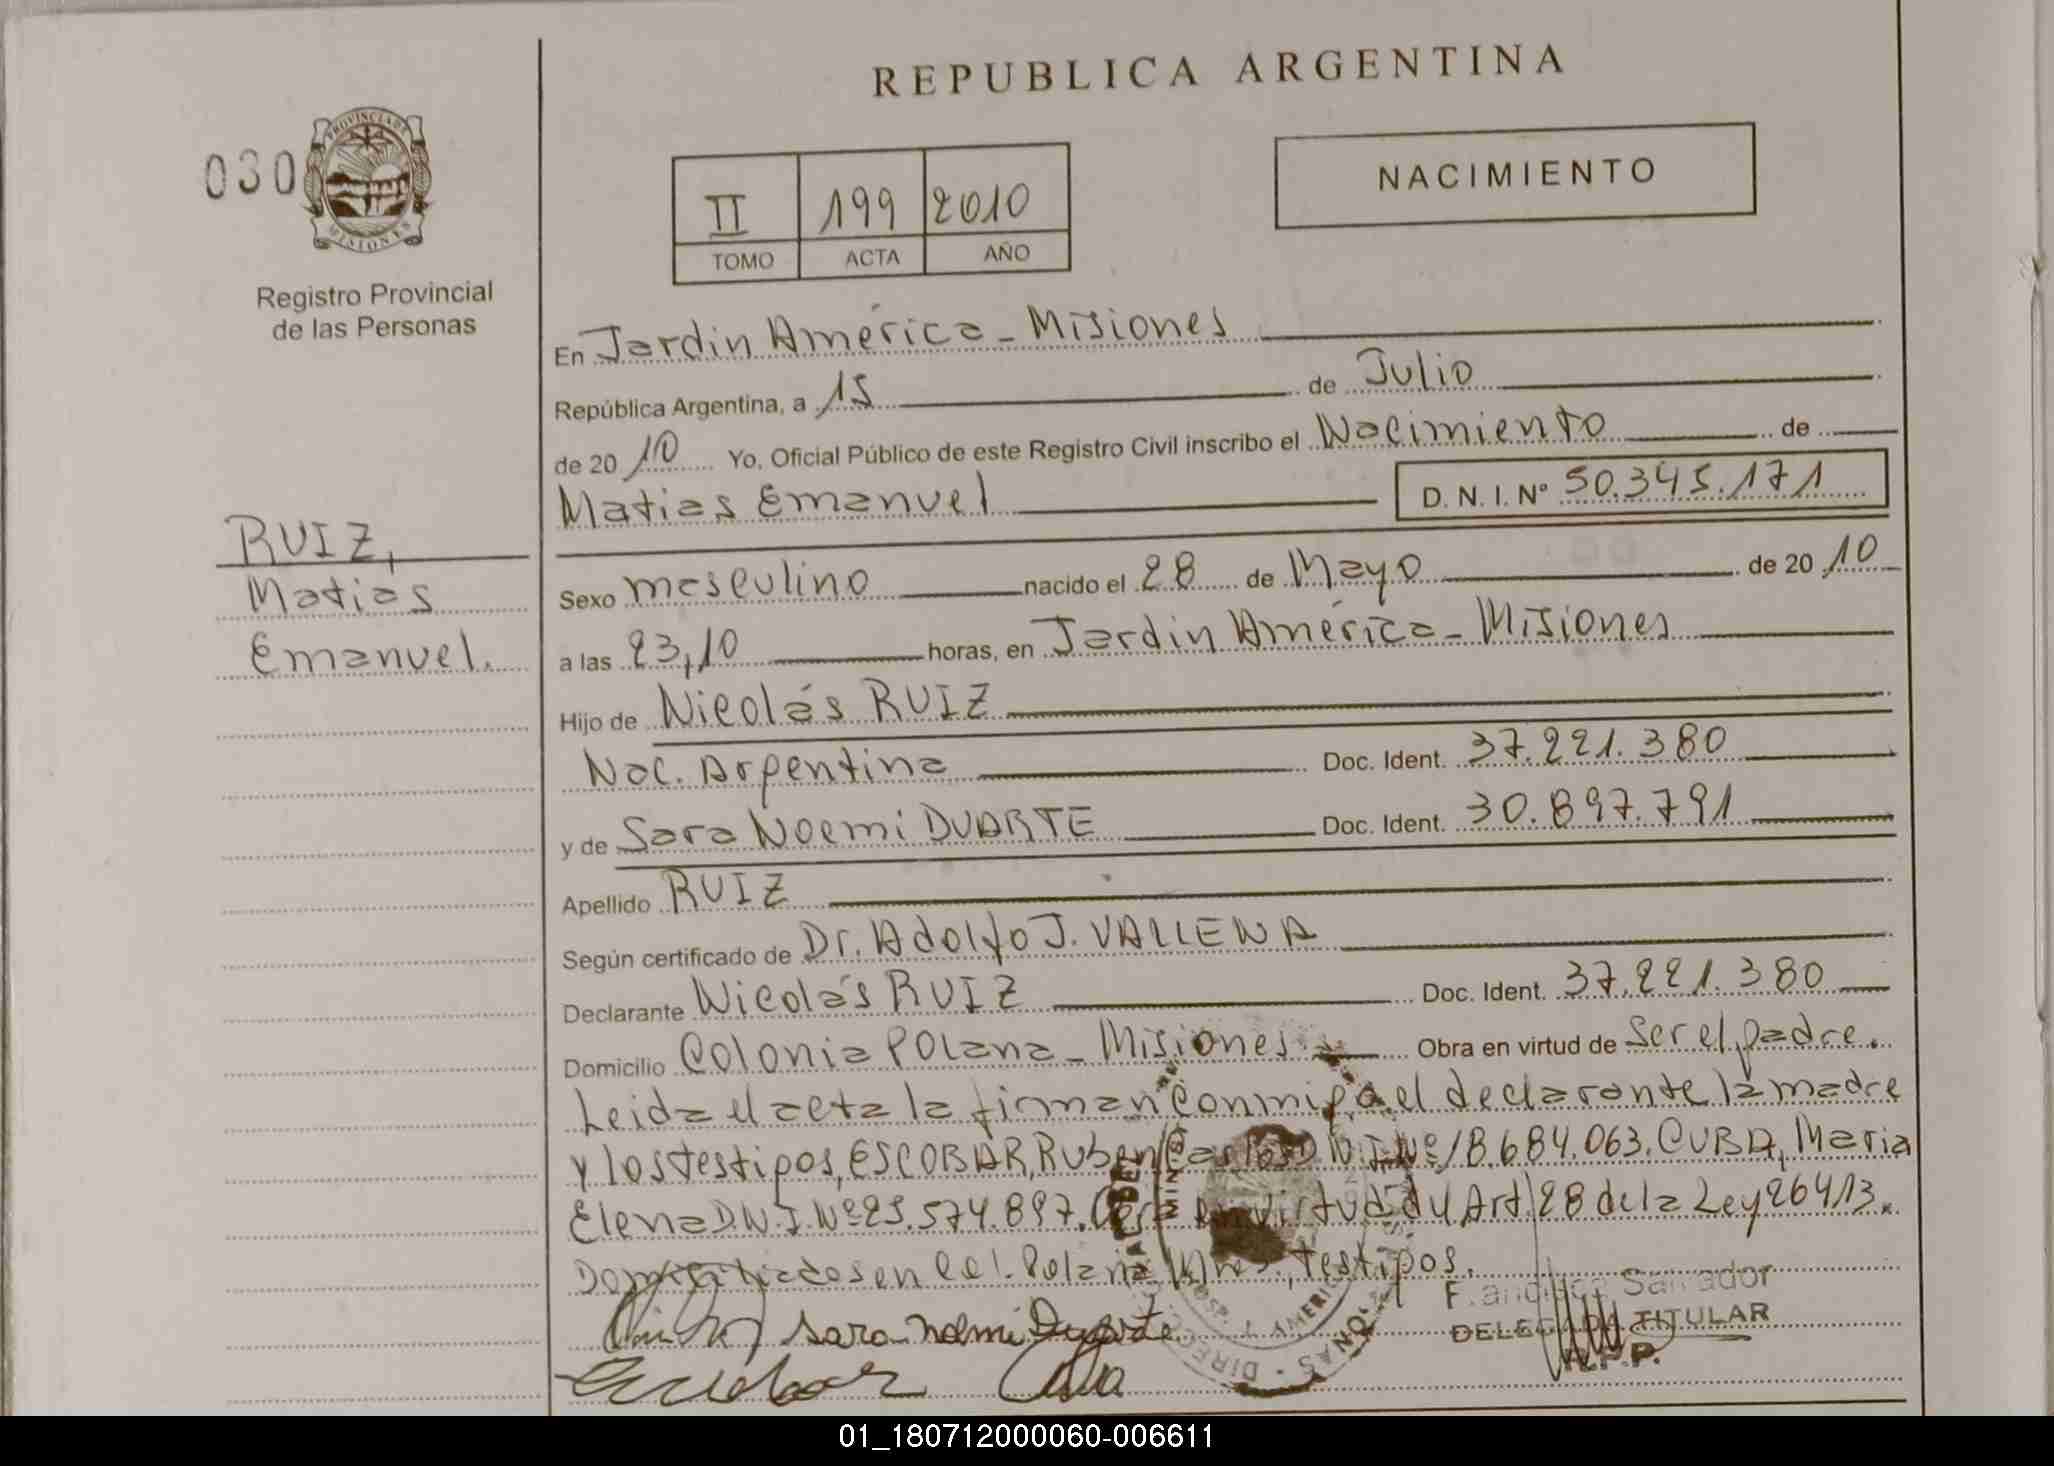 REPUBLICA ARGENTINA
030
PROVINCIA DE
MISIONES
Registro Provincial
de las Personas
II 199 2010
TOMO ACTA AÑO
NACIMIENTO
En Jardin América - Misiones
República Argentina, a 15 de Julio
de 2010 Yo, Oficial Público de este Registro Civil inscribo el Nacimiento de
Matias Emanuel D. N. I. Nº 50.345.171
RUIZ,
Matias
Emanuel.
Sexo masculino nacido el 28 de Mayo de 2010
a las 23,10 horas, en Jardin América - Misiones
Hijo de Nicolás RUIZ
Nac. Argentina Doc. Ident. 37.221.380
y de Sara Noemi DUARTE Doc. Ident. 30.897.791
Apellido RUIZ
Según certificado de Dr. Adolfo J. VALLENA
Declarante Nicolás RUIZ Doc. Ident. 37.221.380
Domicilio Colonia Polana - Misiones Obra en virtud de Ser el padre.
Leida el acta la firman conmigo, el declarante la madre
y los testigos, ESCOBAR, Ruben Carlos D.N.I.Nº 18.684.063. CUBA, Maria
Elena D.N.I.Nº 25.574.897. en virtud del Art. 28 de la Ley 26413.
Domiciliados en Col. Polana testigos.
Sara noemi Duarte
Francisco Salvador
DELEGADO TITULAR
R.P.P.
Escobar
01_180712000060-006611